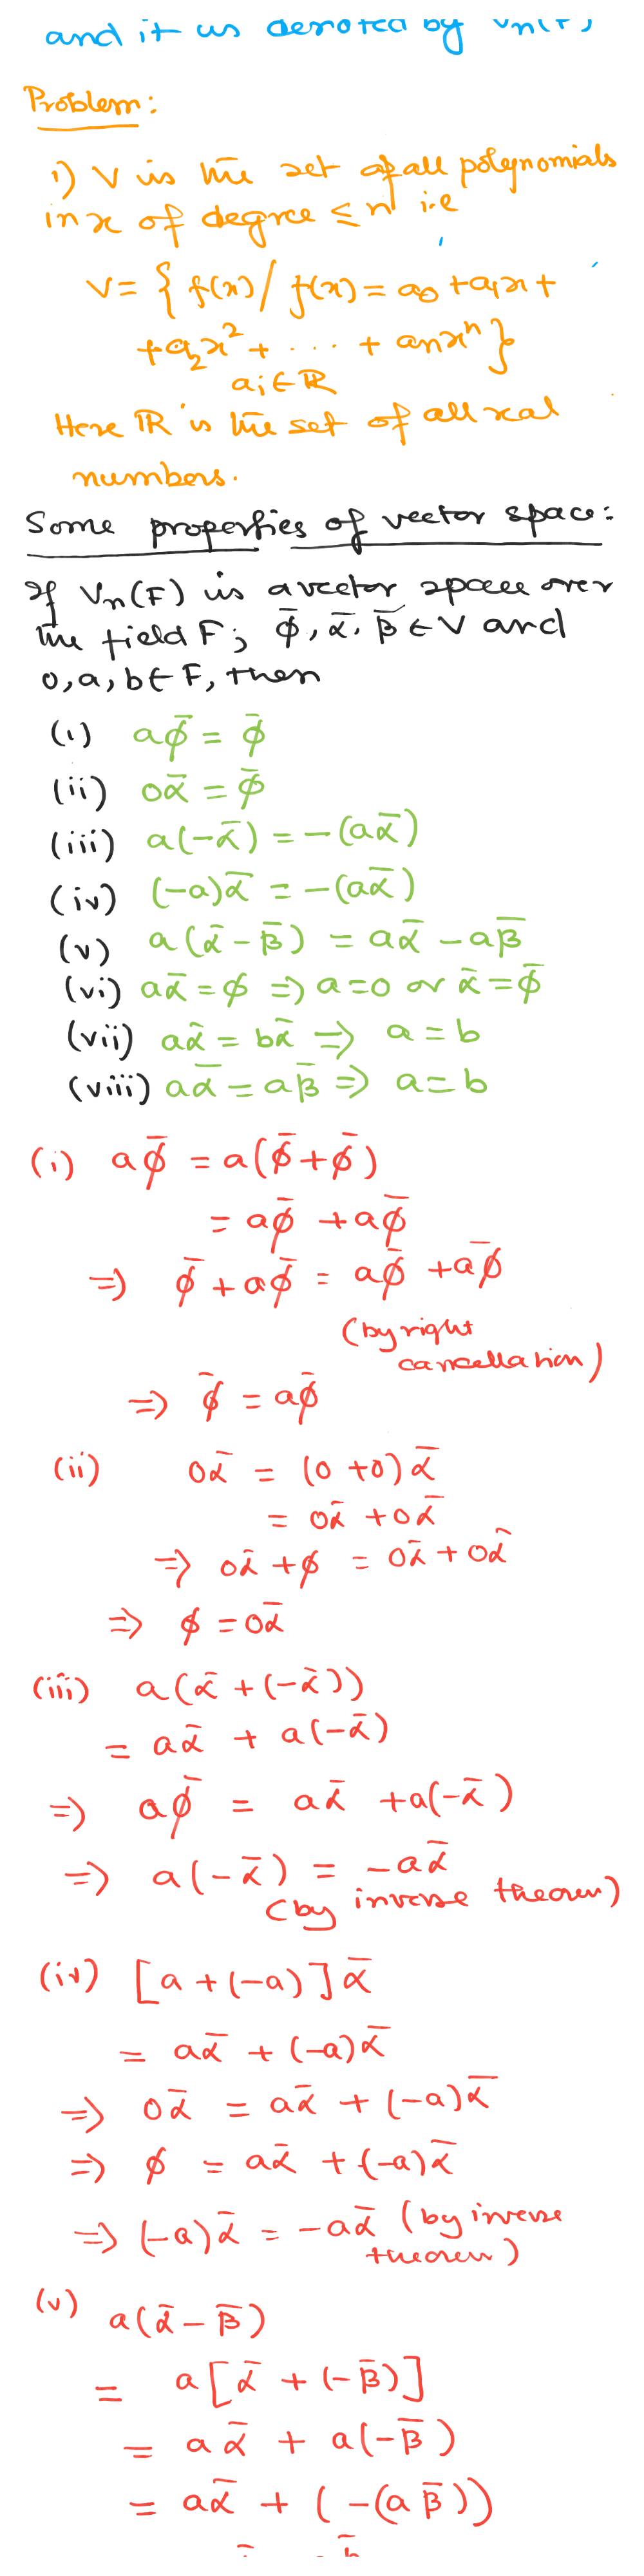 and it is denoted by Vn(F)
Problem:
1) V is the set of all polynomials
in x of degree ≤ n i.e
V = { f(x) / f(x) = a0 + a1x +
+ a2x² + . . . . + anxⁿ }
ai ∈ ℝ
Here ℝ is the set of all real
numbers.
Some properties of vector space:
If Vn(F) is a vector space over
the field F; ϕ̄, ᾱ, β̄ ∈ V and
0, a, b ∈ F, then
(i) aϕ̄ = ϕ̄
(ii) 0ᾱ = ϕ̄
(iii) a(-ᾱ) = -(aᾱ)
(iv) (-a)ᾱ = -(aᾱ)
(v) a(ᾱ - β̄) = aᾱ - aβ̄
(vi) aᾱ = ϕ ⇒ a=0 or ᾱ = ϕ̄
(vii) aᾱ = bᾱ ⇒ a = b
(viii) aᾱ = aβ̄ ⇒ a = b
(i) aϕ̄ = a(ϕ̄ + ϕ̄)
= aϕ̄ + aϕ̄
⇒ ϕ̄ + aϕ̄ = aϕ̄ + aϕ̄
(by right
cancellation)
⇒ ϕ̄ = aϕ̄
(ii) 0ᾱ = (0 + 0)ᾱ
= 0ᾱ + 0ᾱ
⇒ 0ᾱ + ϕ = 0ᾱ + 0ᾱ
⇒ ϕ = 0ᾱ
(iii) a(ᾱ + (-ᾱ))
= aᾱ + a(-ᾱ)
⇒ aϕ̄ = aᾱ + a(-ᾱ)
⇒ a(-ᾱ) = -aᾱ
(by inverse theorem)
(iv) [a + (-a)]ᾱ
= aᾱ + (-a)ᾱ
⇒ 0ᾱ = aᾱ + (-a)ᾱ
⇒ ϕ = aᾱ + (-a)ᾱ
⇒ (-a)ᾱ = -aᾱ (by inverse
theorem)
(v) a(ᾱ - β̄)
= a[ᾱ + (-β̄)]
= aᾱ + a(-β̄)
= aᾱ + (-(aβ̄))